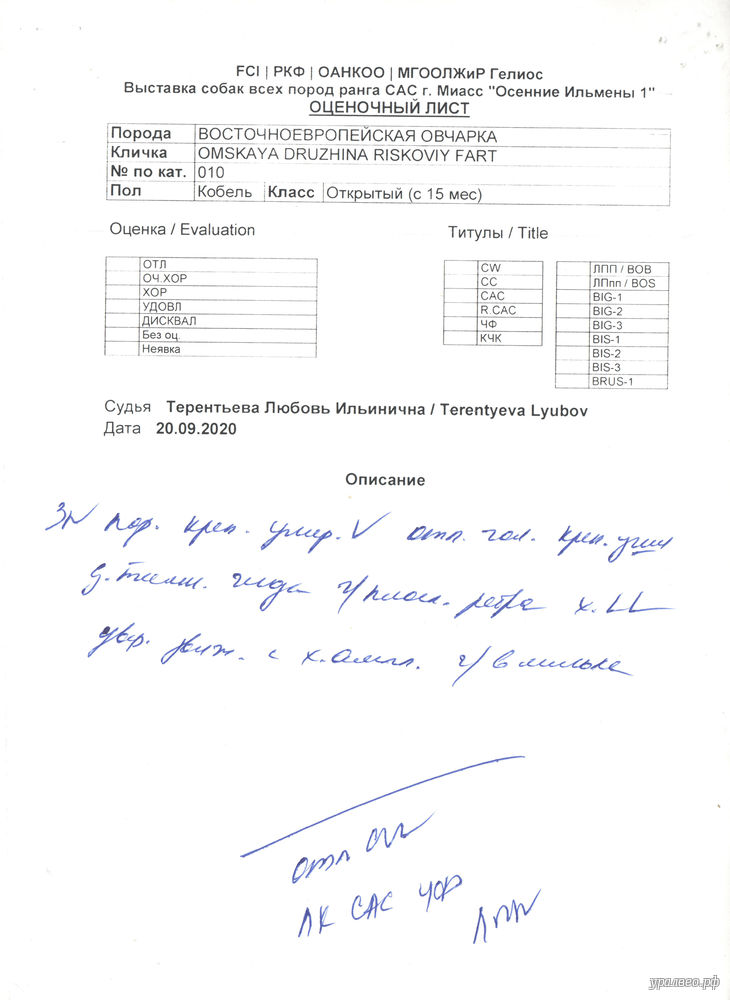 FCI | РКФ | ОАНКОО | МГООЛЖиР Гелиос
Выставка собак всех пород ранга САС г. Миасс "Осенние Ильмены 1"
ОЦЕНОЧНЫЙ ЛИСТ
Порода ВОСТОЧНОЕВРОПЕЙСКАЯ ОВЧАРКА
Кличка OMSKAYA DRUZHINA RISKOVIY FART
№ по кат. 010
Пол Кобель Класс Открытый (с 15 мес)
Оценка / Evaluation
Титулы / Title
ОТЛ
ОЧ.ХОР
ХОР
УДОВЛ
ДИСКВАЛ
Без оц.
Неявка
CW
CC
CAC
R.CAC
ЧФ
КЧК
ЛПП / BOB
ЛПпп / BOS
BIG-1
BIG-2
BIG-3
BIS-1
BIS-2
BIS-3
BRUS-1
Судья Терентьева Любовь Ильинична / Terentyeva Lyubov
Дата 20.09.2020
Описание
пор. креп. V отл. гол. креп. уши
ч/плоск. ребра х. LL
увер. движ. с х.
отл CW
ЛК САС ЧФ
ЛПП
уралвео.рф